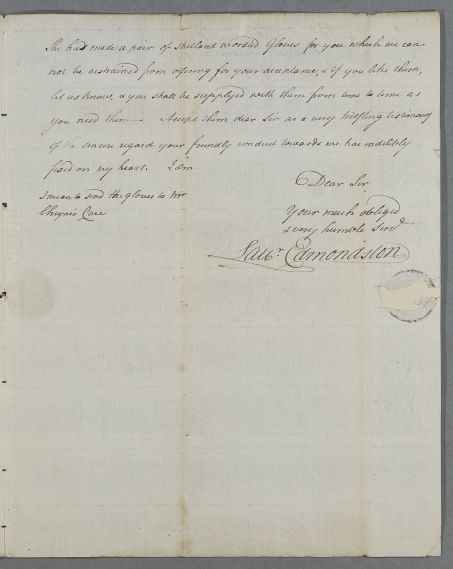 She has made a pair of Shetland worsted Gloves for you which we can
not be restrained from offering for your acceptance, & if you like them,
let us know, & you shall be supplyed with them from time to time as
you need them — Accept them dear Sir as a very trifling testimony
of the sincere regard your friendly conduct towards me has indelibly
fixed on my heart. I am
I mean to send the gloves to Mr
Cheyne's Care
Dear Sir
Your much obliged
& very humble Servt
Laur. Edmondston